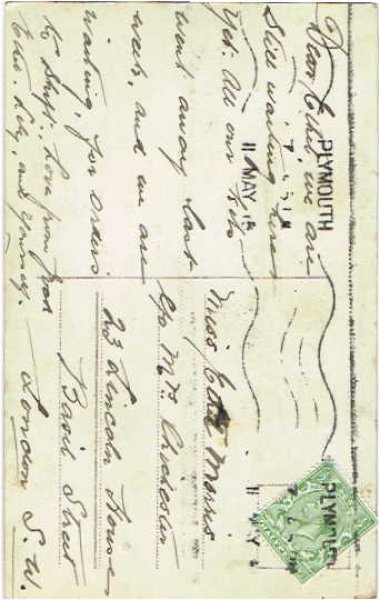 PLYMOUTH
11 MAY
Dear Ethel, we are
Still waiting here
Yet. All our Kits
went away last
week, and we are
waiting, for orders
to Shift. Love from
Chas. Lily, and
PLYMOUTH
11 MAY
Miss Ethel Morris
C/o Mrs. Chichester
23 Lincoln House
Basil Street
London S.W.